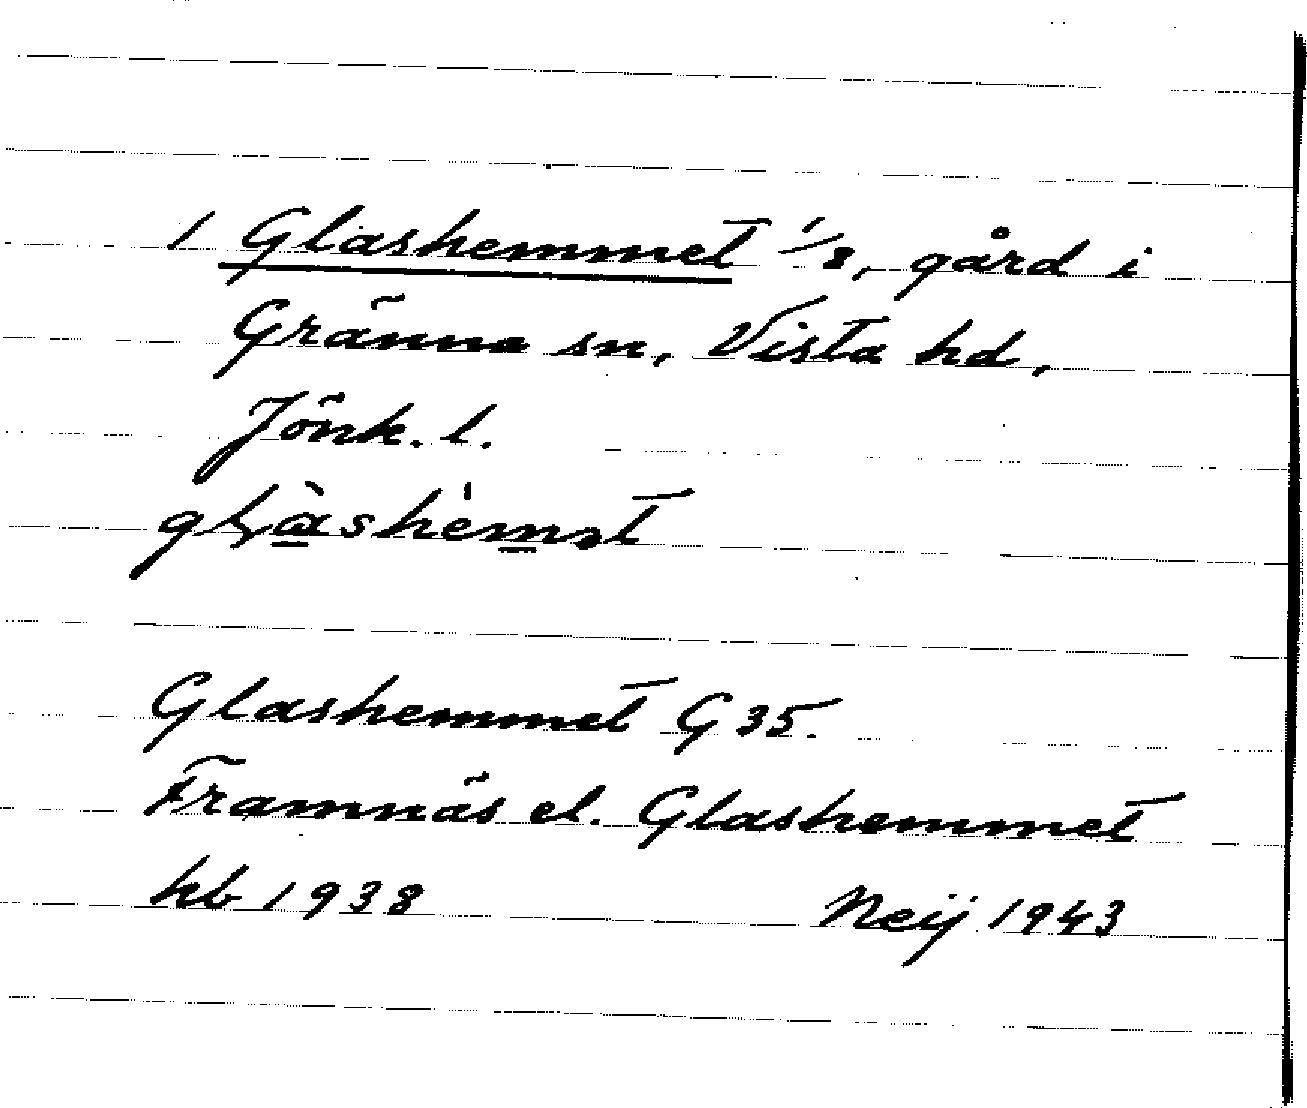 1 Glashemmet 1/8, gård i
Gränna sn, Vista hd,
Jönk. l.
Glashemmet G 35.
Framnäs el. Glashemmet
hb 1938 Neij 1943